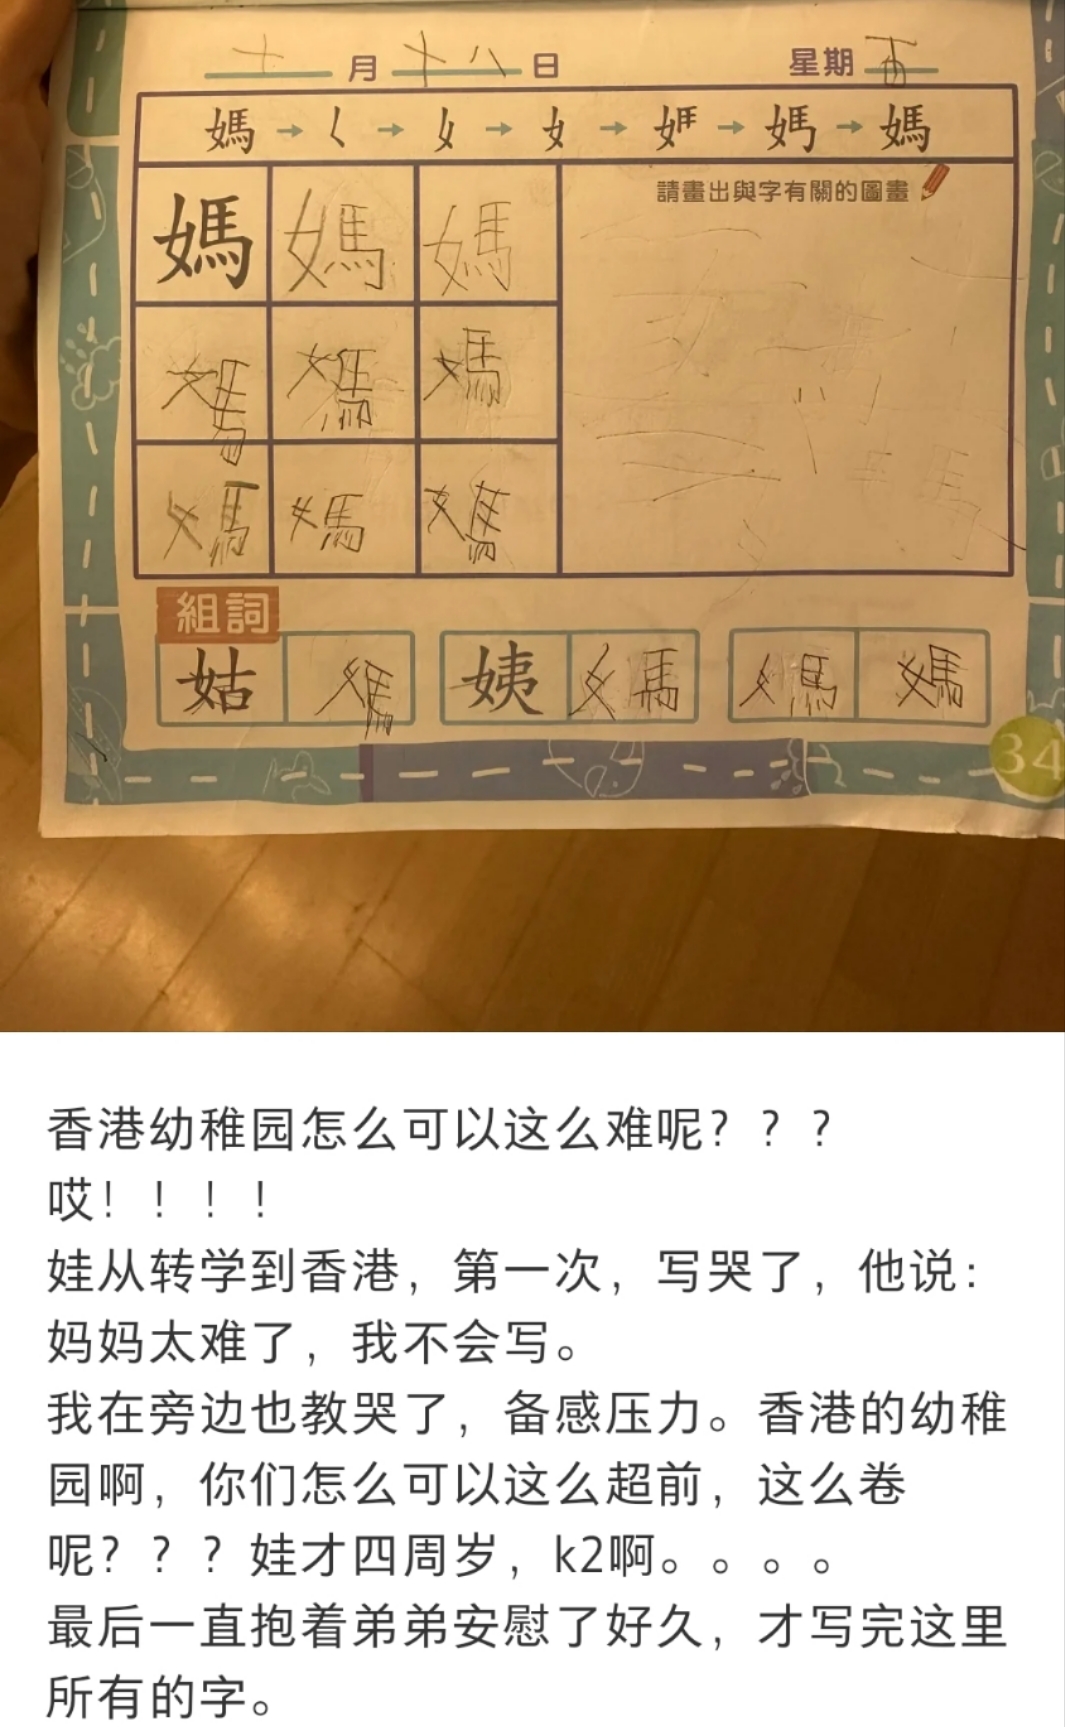 十月十八日 星期五
媽→𡿨→女→女→→→媽
請畫出與字有關的圖畫
媽 媽 媽
媽 媽 媽
媽 媽 媽
組詞
姑 媽 姨 媽 媽 媽
34
香港幼稚园怎么可以这么难呢？？？
哎！！！！
娃从转学到香港，第一次，写哭了，他说：
妈妈太难了，我不会写。
我在旁边也教哭了，备感压力。香港的幼稚
园啊，你们怎么可以这么超前，这么卷
呢？？？娃才四周岁，k2啊。。。。
最后一直抱着弟弟安慰了好久，才写完这里
所有的字。